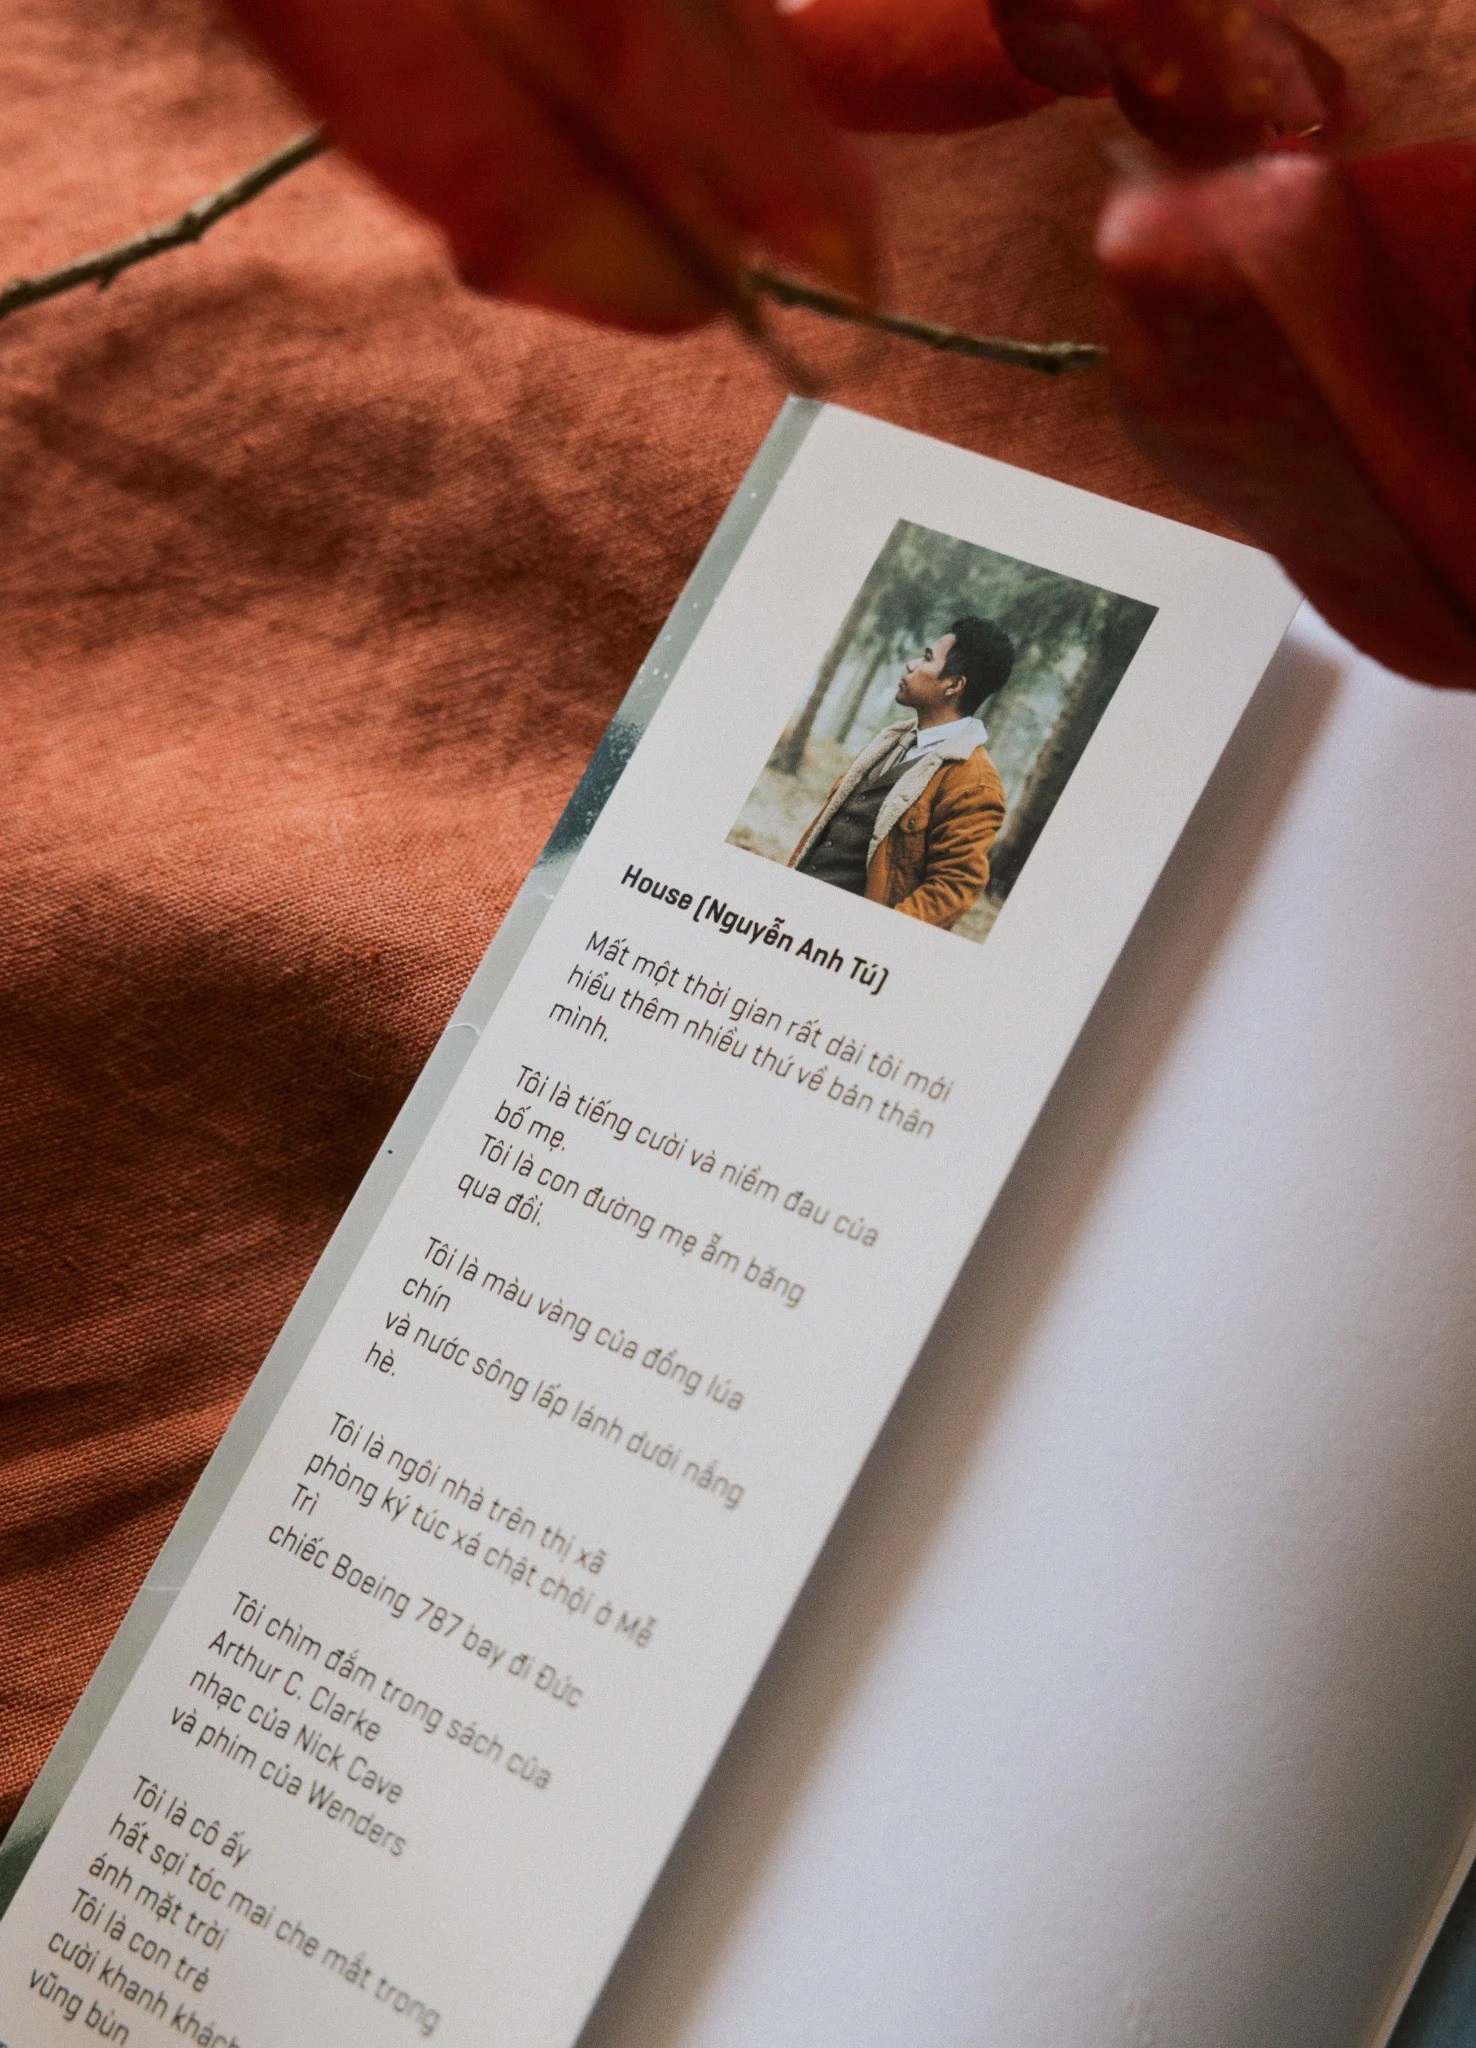 House (Nguyễn Anh Tú)
Mất một thời gian rất dài tôi mới
hiểu thêm nhiều thứ về bản thân
mình.
Tôi là tiếng cười và niềm đau của
bố mẹ.
Tôi là con đường mẹ ẵm băng
qua đồi.
Tôi là màu vàng của đồng lúa
chín
và nước sông lấp lánh dưới nắng
hè.
Tôi là ngôi nhà trên thị xã
phòng ký túc xá chật chội ở Mễ
Trì
chiếc Boeing 787 bay đi Đức
Tôi chìm đắm trong sách của
Arthur C. Clarke
nhạc của Nick Cave
và phim của Wenders
Tôi là cô ấy
hất sợi tóc mai che mắt trong
ánh mặt trời
Tôi là con trẻ
cười khanh khách
vũng bùn